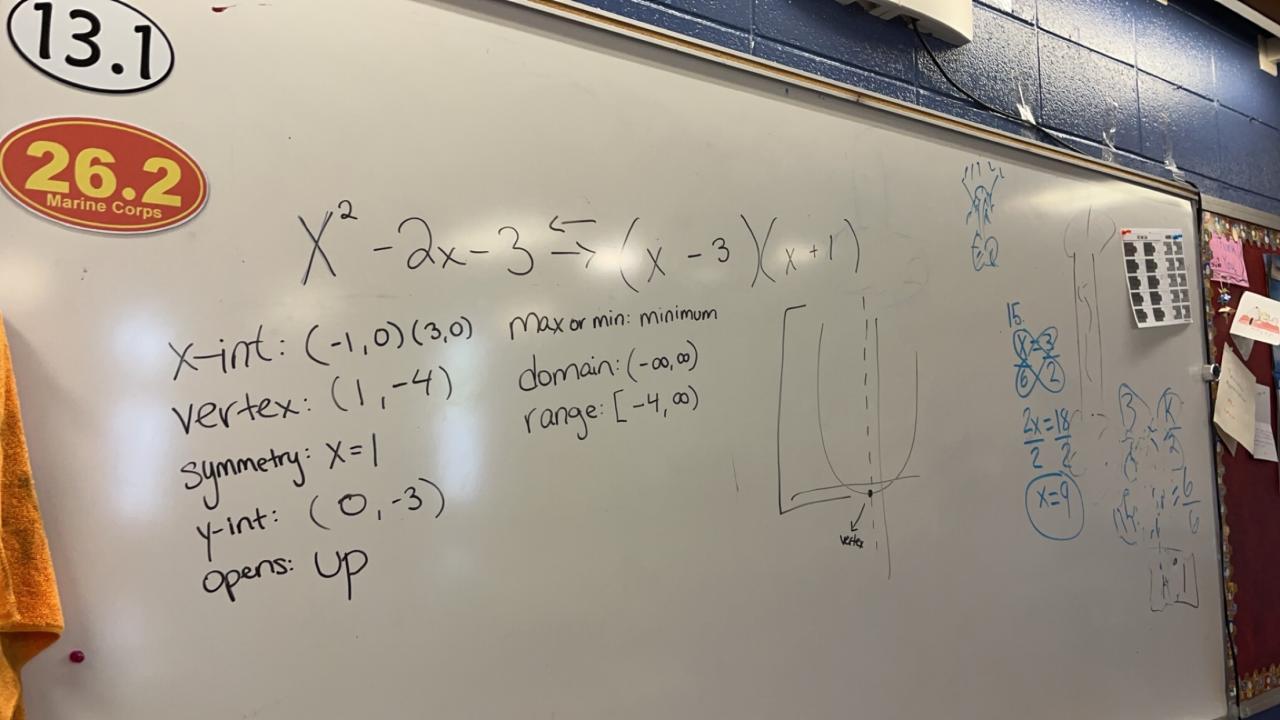 13.1
26.2
Marine Corps
x² - 2x - 3 ⇄ (x - 3)(x + 1)
x-int: (-1, 0) (3, 0)
vertex: (1, -4)
symmetry: x = 1
y-int: (0, -3)
opens: up
Max or min: minimum
domain: (-∞, ∞)
range: [-4, ∞)
vertex
EQ
15.
x = 3
6 2
2x = 18
2 2
x = 9